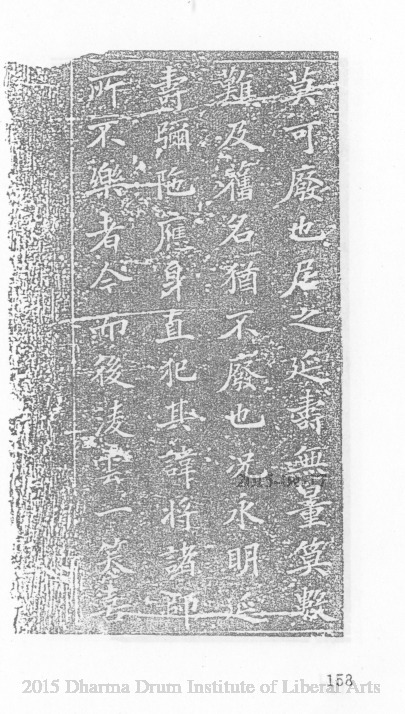 莫可廢也居之延壽無量筭數
難及舊名猶不廢也況永明延
壽彌陁應身直犯其諱將諸師
所不樂者今而後淩雲一菴吉
2015 Dharma Drum Institute of Liberal Arts
153